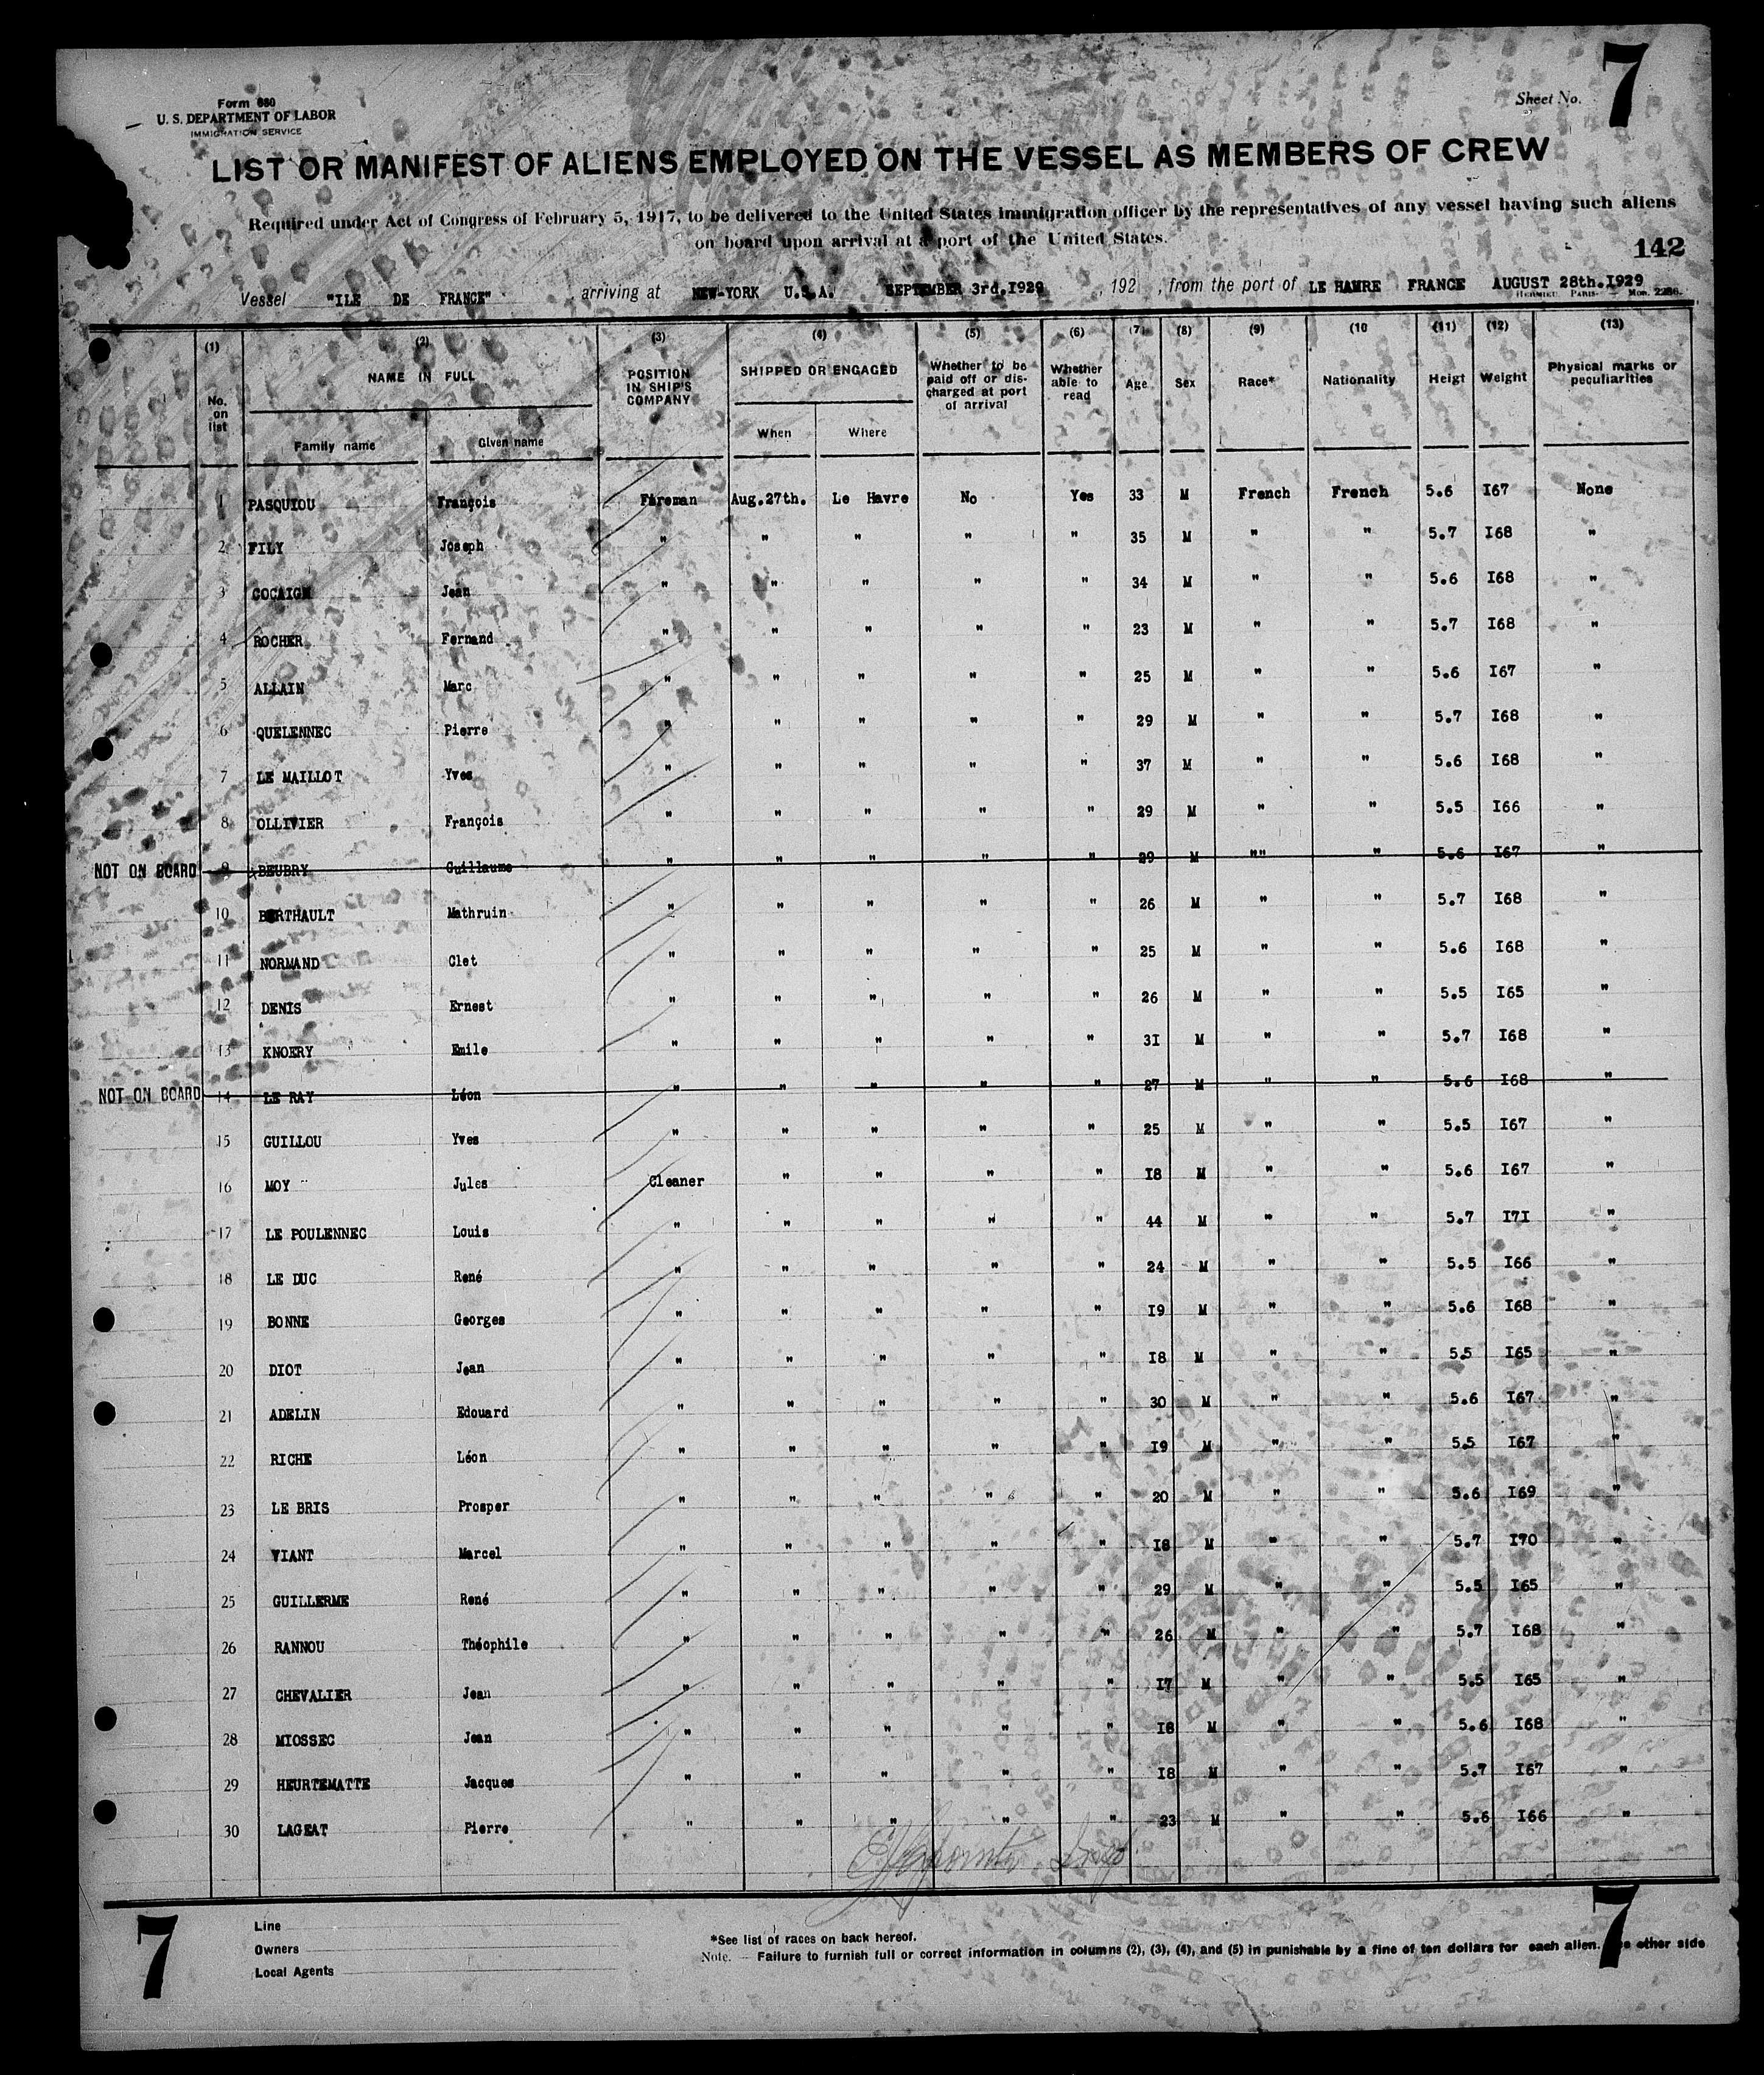 Form 680
U. S. DEPARTMENT OF LABOR
IMMIGRATION SERVICE
Sheet No. 7
LIST OR MANIFEST OF ALIENS EMPLOYED ON THE VESSEL AS MEMBERS OF CREW
Required under Act of Congress of February 5, 1917, to be delivered to the United States immigration officer by the representatives of any vessel having such aliens
on board upon arrival at a port of the United States.
142
Vessel "ILE DE FRANCE" arriving at NEW-YORK U.S.A. SEPTEMBER 3rd.I929 , 192 , from the port of LE HAVRE FRANCE AUGUST 28th.I929
(1) (2) (3) (4) (5) (6) (7) (8) (9) (10 (11) (12) (13)
No. on list NAME IN FULL Family name Given name POSITION IN SHIP'S COMPANY SHIPPED OR ENGAGED When Where Whether to be paid off or discharged at port of arrival Whether able to read Age Sex Race* Nationality Heigt Weight Physical marks or peculiarities
1 PASQUIOU François Fireman Aug.27th. Le Havre No Yes 33 M French French 5.6 I67 None
2 FILY Joseph " " " " " 35 M " " 5.7 I68 "
3 COCAIGN Jean " " " " " 34 M " " 5.6 I68 "
4 ROCHER Fernand " " " " " 23 M " " 5.7 I68 "
5 ALLAIN Marc " " " " " 25 M " " 5.6 I67 "
6 QUELENNEC Pierre " " " " " 29 M " " 5.7 I68 "
7 LE MAILLOT Yves " " " " " 37 M " " 5.6 I68 "
8 OLLIVIER François " " " " " 29 M " " 5.5 I66 "
NOT ON BOARD 9 BEUBRY Guillaume " " " " " 29 M "" " 5.6 I67 "
10 BERTHAULT Mathruin " " " " " 26 M " " 5.7 I68 "
11 NORMAND Clet " " " " " 25 M " " 5.6 I68 "
12 DENIS Ernest " " " " " 26 M " " 5.5 I65 "
13 KNOERY Emile " " " " " 3I M " " 5.7 I68 "
NOT ON BOARD 14 LE RAY Léon " " " " " 27 M " " 5.6 I68 "
15 GUILLOU Yves " " " " " 25 M " " 5.5 I67 "
16 MOY Jules Cleaner " " " " I8 M " " 5.6 I67 "
17 LE POULENNEC Louis " " " " " 44 M " " 5.7 I7I "
18 LE DUC René " " " " " 24 M " " 5.5 I66 "
19 BONNE Georges " " " " " I9 M " " 5.6 I68 "
20 DIOT Jean " " " " " I8 M " " 5.5 I65 "
21 ADELIN Edouard " " " " " 30 M " " 5.6 I67 "
22 RICHE Léon " " " " " I9 M " " 5.5 I67 "
23 LE BRIS Prosper " " " " " 20 M " " 5.6 I69 "
24 VIANT Marcel " " " " " I8 M " " 5.7 I70 "
25 GUILLERME René " " " " " 29 M " " 5.5 I65 "
26 RANNOU Théophile " " " " " 26 M " " 5.7 I68 "
27 CHEVALIER Jean " " " " " I7 M " " 5.5 I65 "
28 MIOSSEC Jean " " " " " I8 M " " 5.6 I68 "
29 HEURTEMATTE Jacques " " " " " I8 M " " 5.7 I67 "
30 LAGEAT Pierre " " " " " 23 M " " 5.6 I66 "
7
7
Line
Owners
Local Agents
*See list of races on back hereof.
Note. — Failure to furnish full or correct information in columns (2), (3), (4), and (5) in punishable by a fine of ten dollars for each alien. other side